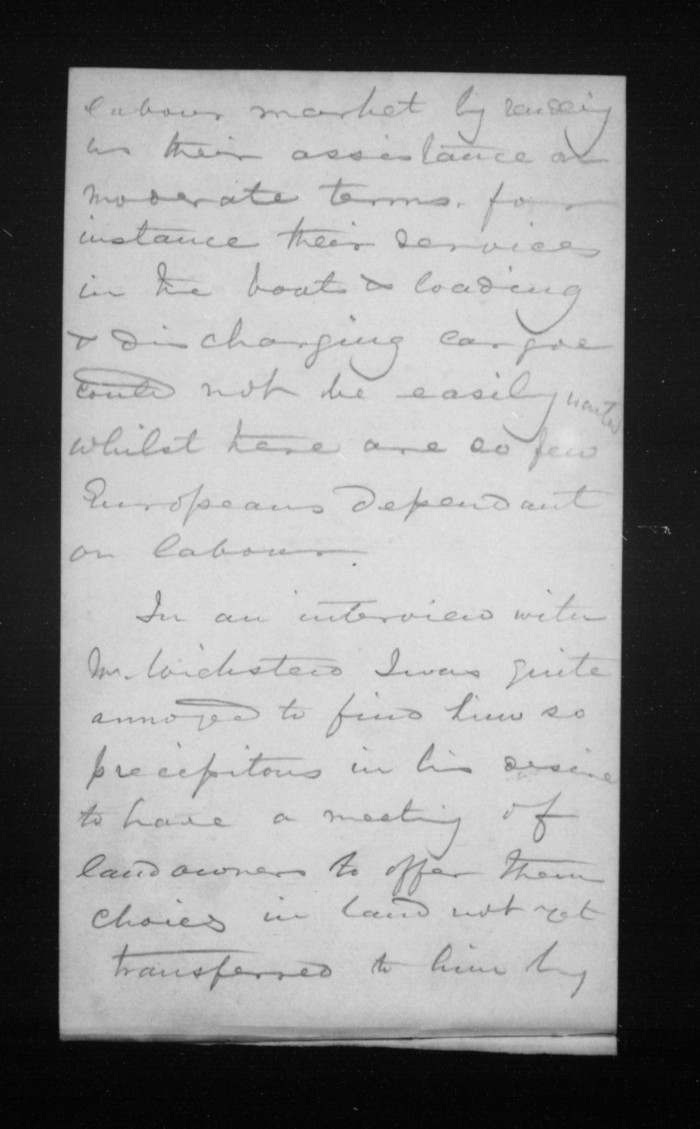 labour market by lending
us their assistance on
moderate terms. for
instance their services
in the boats & loading
& discharging cargoe
could not be easily wanted
whilst there are so few
Europeans dependant
on labour.
In an interview with
Mr. Wicksteed I was quite
annoyed to find him so
precipitous in his desire
to have a meeting of
landowners to offer them
choices in land not yet
transferred to him by